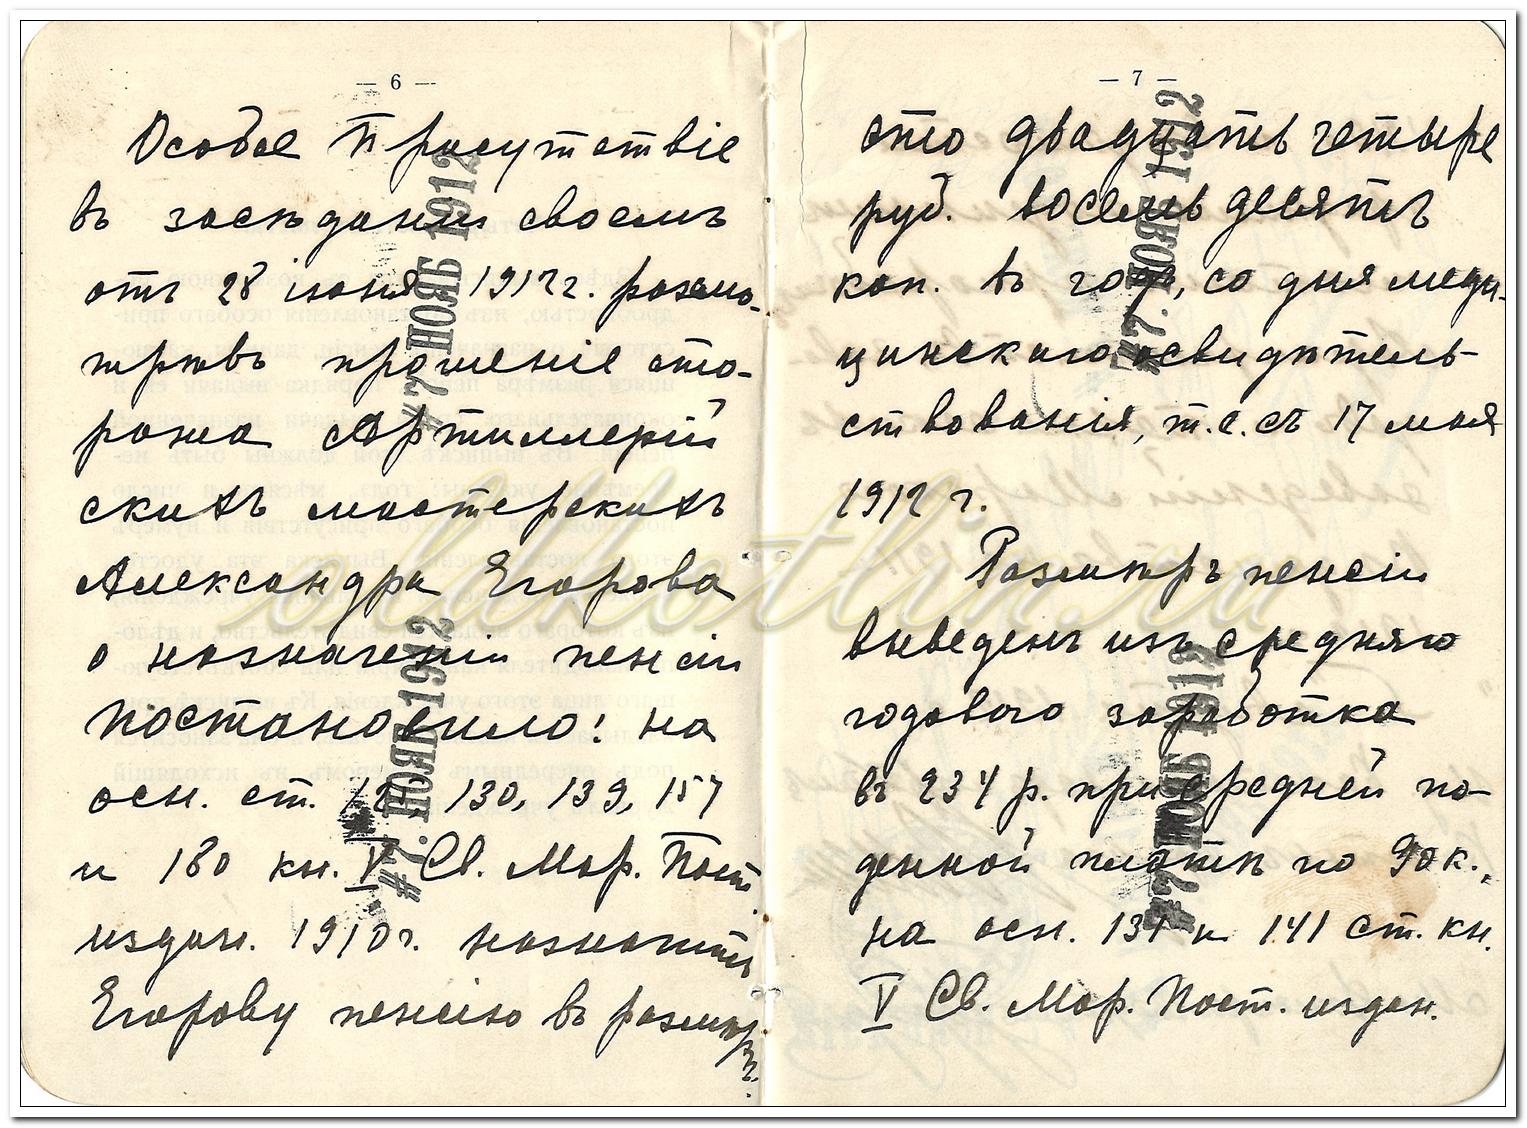 — 6 —
Особое Присутствіе
въ засѣданіи своемъ
отъ 28 іюня 1912 г. разсмо-
трѣвъ прошеніе сто-
рожа Артиллерій
скихъ мастерскихъ
Александра Егорова
о назначеніи пенсіи
постановило: на
осн. ст. 130, 139, 157
и 180 кн. V Св. Мор. Пост.
издан. 1910 г. назначить
Егорову пенсію въ размѣрѣ
— 7 —
сто двадцать четыре
руб. восемьдесятъ
коп. въ годъ, со дня меди-
цинскаго освидѣтель-
ствованія, т.е. съ 17 мая
1912 г.
Размѣръ пенсіи
выведенъ изъ средняго
годового заработка
въ 234 р. при средней по-
денной платѣ по 90 к.,
на осн. 131 и 141 ст. кн.
V Св. Мор. Пост. издан.
#7. НОЯБ 1912
#7. НОЯБ 1912
#7. НОЯБ 1912
#7 НОЯБ 1912
oldkotlin.ru